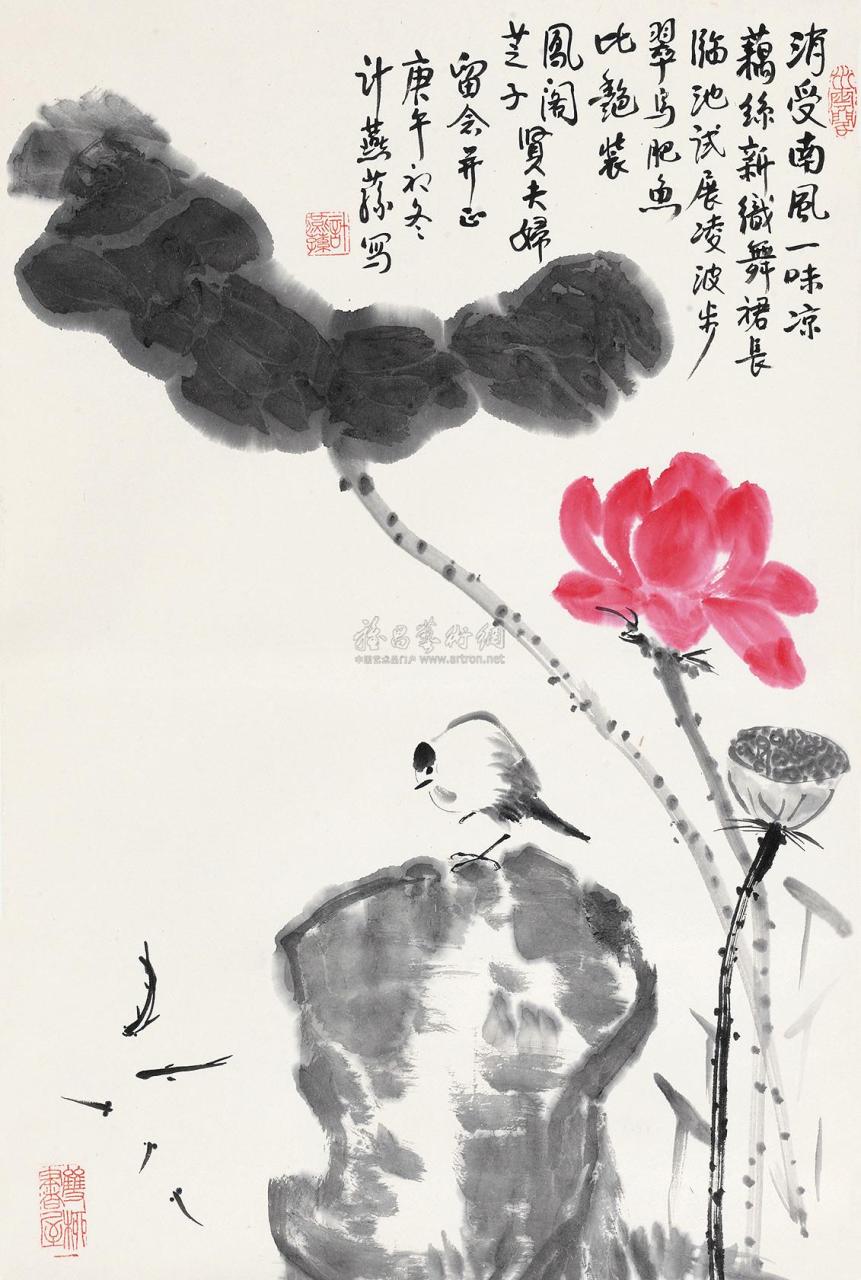 消受南風一味凉
藕絲新織舞裙長
臨池試展凌波步
翠鸟肥魚
比艷裝
鳳阁
芝子賢夫婦
留念并正
庚午初冬
计燕蓀写
雅昌藝術網
中国艺术品门户 www.artron.net